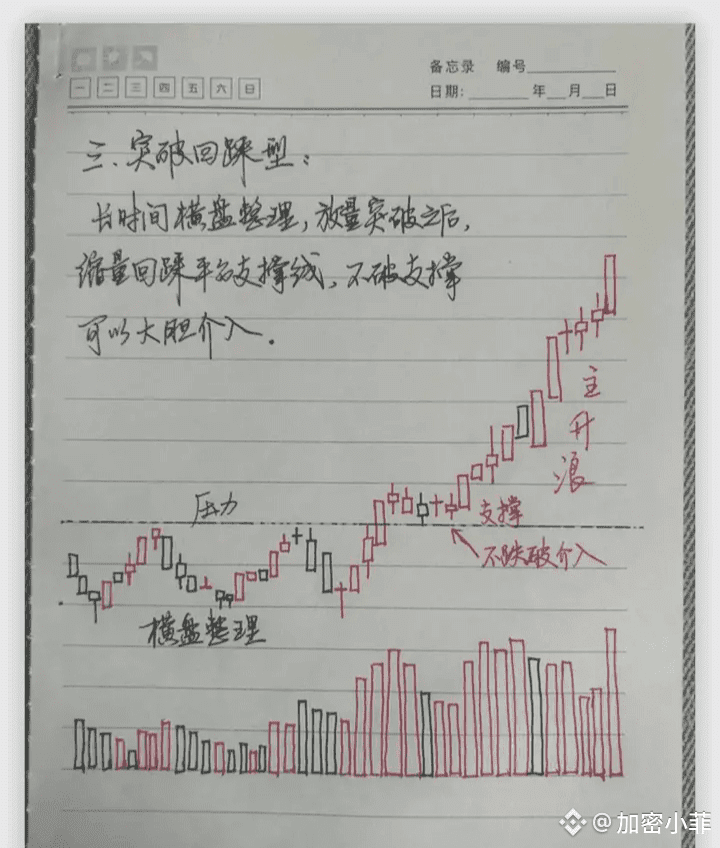 备忘录 编号
一 二 三 四 五 六 日
日期: 年 月 日
三、突破回踩型:
长时间横盘整理,放量突破之后,
缩量回踩平台支撑线,不破支撑
可以大胆介入.
主升浪
压力
支撑
不跌破介入
横盘整理
@加密小菲